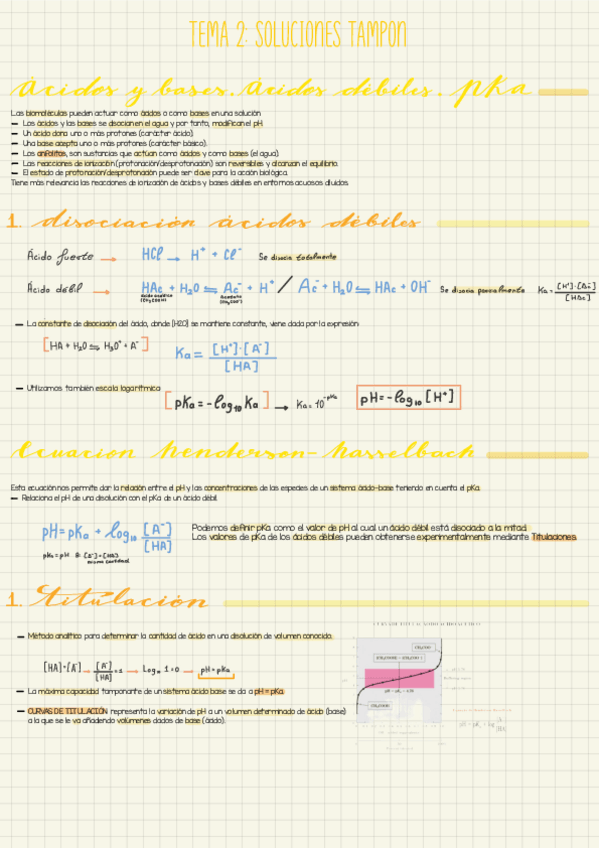 TEMA 2: SOLUCIONES TAMPON
Ácidos y bases. Ácidos débiles. pKa
Las biomoléculas pueden actuar como ácidos o como bases en una solución
– Los ácidos y las bases se disocian en el agua y por tanto, modifican el pH.
– Un ácido dona uno o más protones (carácter ácido).
– Una base acepta uno o más protones (carácter básico).
– Los anfolitos, son sustancias que actúan como ácidos y como bases (el agua).
– Las reacciones de ionización (protonación/desprotonación) son reversibles y alcanzan el equilibrio.
– El estado de protonación/desprotonación puede ser clave para la acción biológica.
Tiene más relevancia las reacciones de ionización de ácidos y bases débiles en entornos acuosos diluidos.
1. disociación ácidos débiles
Ácido fuerte → HCl → H⁺ + Cl⁻ Se disocia totalmente
Ácido débil → HAc + H2O ⇌ Ac⁻ + H⁺ / Ac⁻ + H2O ⇌ HAc + OH⁻ Se disocia parcialmente Ka = [H⁺]·[Ac⁻] / [HAc]
ácido acético (CH₃COOH) Acetato (CH₃COO⁻)
– La constante de disociación del ácido, donde [H2O] se mantiene constante, viene dada por la expresión:
[HA + H2O ⇌ H3O⁺ + A⁻] Ka = [H⁺]·[A⁻] / [HA]
– Utilizamos también escala logarítmica
[pKa = -log₁₀ Ka] → Ka = 10^-pKa pH = -log₁₀ [H⁺]
Ecuación Henderson-Hasselbach
Esta ecuación nos permite dar la relación entre el pH y las concentraciones de las especies de un sistema ácido-base teniendo en cuenta el pKa.
– Relaciona el pH de una disolución con el pKa de un ácido débil
pH = pKa + log₁₀ [A⁻] / [HA]
pKa = pH si [A⁻] = [HA]
misma cantidad
Podemos definir pKa como el valor de pH al cual un ácido débil está disociado a la mitad.
Los valores de pKa de los ácidos débiles pueden obtenerse experimentalmente mediante Titulaciones.
1. Titulación
– Método analítico para determinar la cantidad de ácido en una disolución de volumen conocido.
[HA] = [A⁻] → [A⁻] / [HA] = 1 → Log₁₀ 1 = 0 → pH = pKa
– La máxima capacidad tamponante de un sistema ácido base se da a pH = pKa
– CURVAS DE TITULACIÓN: representa la variación de pH a un volumen determinado de ácido (base)
a la que se le va añadiendo volúmenes dados de base (ácido).